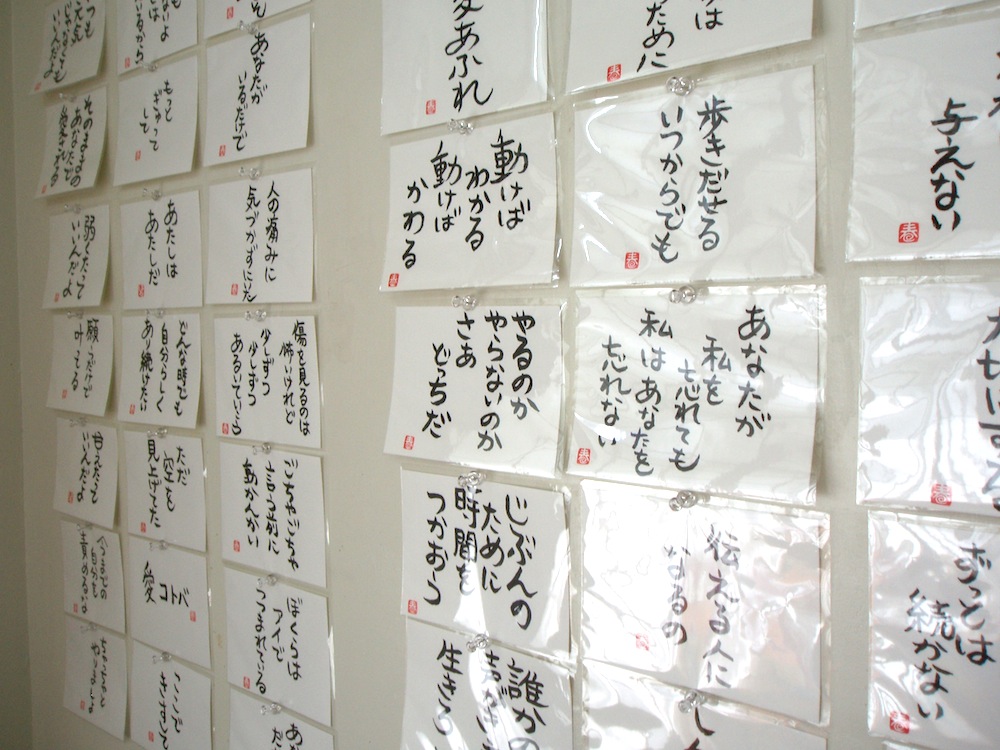 いつも
元気
じゃなくても
いいんだよ
そのままの
あなたで
弱くたって
いいんだよ
いいんだよ
今までの
自分を
責めるな
ちゃっちゃと
いるから
もっと
ぎゅって
して
あたしは
あたしだ
どんな時でも
自分らしく
あり続けたい
ただ
空を
見上げてた
コトバ
愛
ここで
きすして
あなたが
いるだけで
人の痛みに
気づかずにいた
傷を見るのは
怖いけれど
少しずつ
少しずつ
あるいていこう
ごちゃごちゃ
言う前に
動かんかい
ぼくらは
アイで
つつまれてる
あな
あふれ
春
動けば
わかる
動けば
かわる
春
やるのか
やらないのか
さぁ
どっちだ
春
じぶんの
ために
時間を
つかおーう
春
誰かの
生きろ
は
ために
春
歩きだせる
いつからでも
春
あなたが
私を
忘れても
私はあなたを
忘れない
春
伝える人に
なるの
春
与えない
春
春
ずっとは
続かない
春